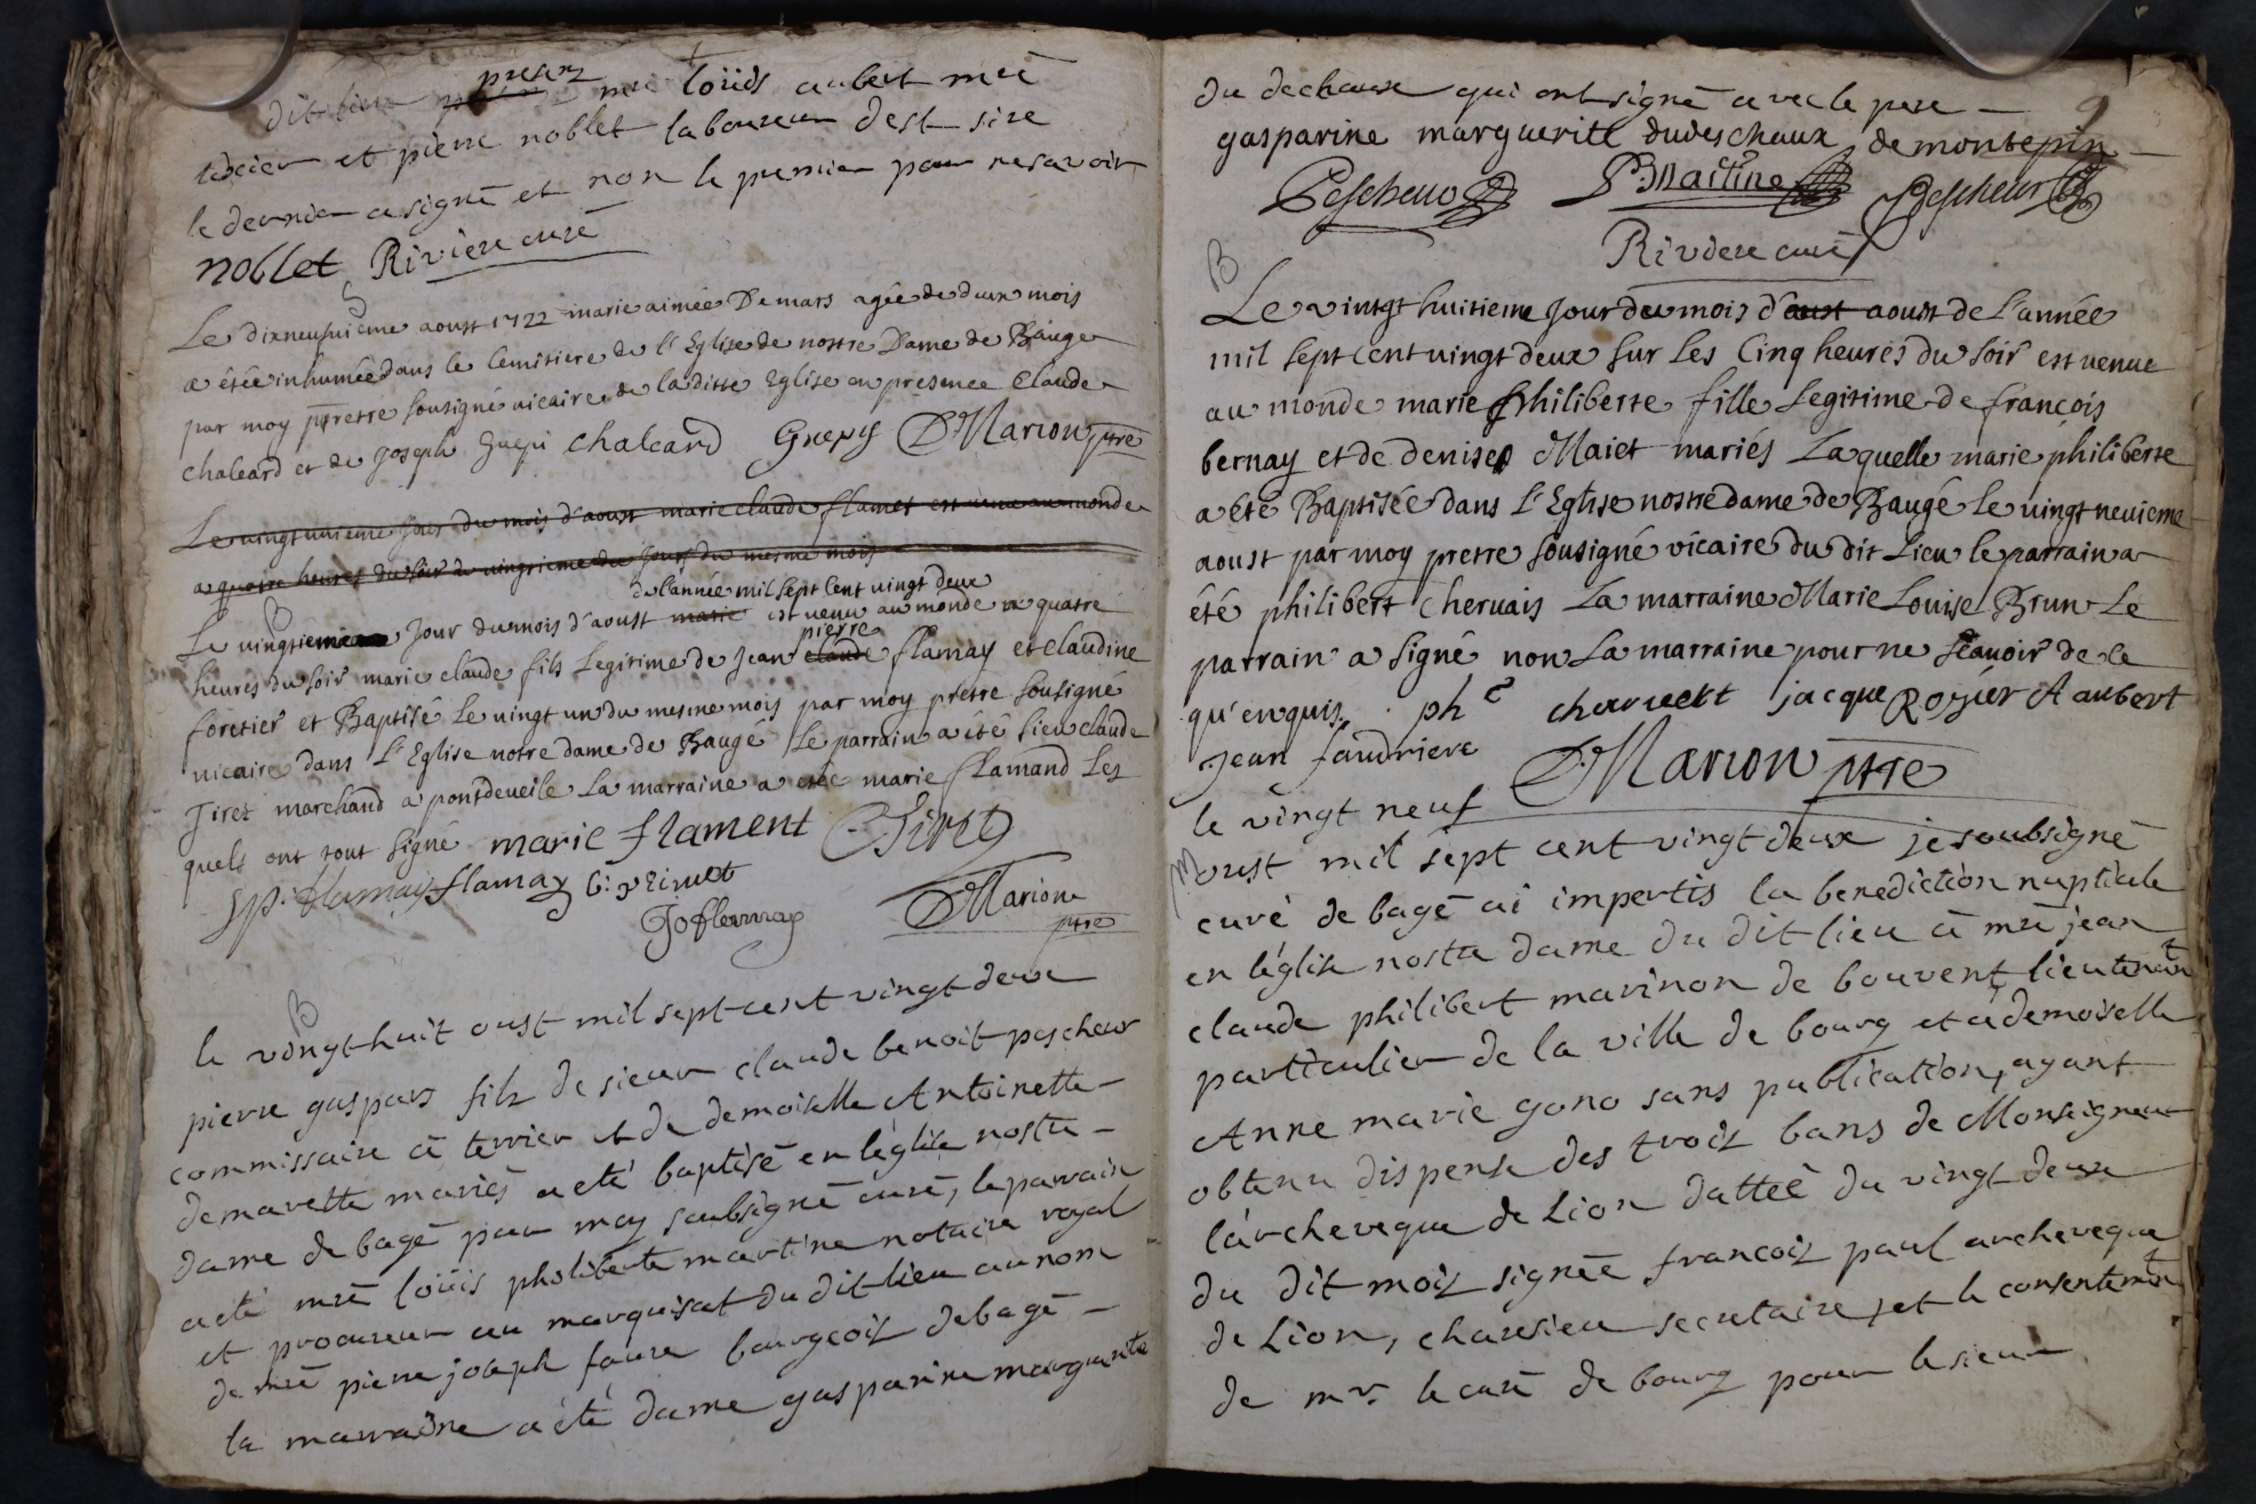 dit lieu presnz mre loüis aubert mre
tixier et pierre noblet laboureur dest sire
le dernier a signé et non le premier pour ne savoir
noblet Riviere curé
S
Le dixneufuieme aoust 1722 marie aimée Demars agée de deux mois
a étée inhumée dans le Cemitiere de l'Eglise de nostre Dame de Baugé
par moy prretre sousigné vicaire de laditte Eglise en presence Claude
chaleard et de joseph guepi chaleard Guepy DMarion ptre
Le vingtunieme jour du mois d'aoust marie claude flamet est venu au monde
a quatre heures du soir du vingtieme du jour du mesme mois
de l'année mil sept cent vingt deux
B
Le vingtieme jour du mois d'aoust marie est venu au monde a quatre
pierre
heures du soir marie claude fils legitime de jean claude flamay et claudine
foretier et Baptisé le vingt un du mesme mois par moy pretre sousigné
vicaire dans l'Eglise notre dame de Baugé le parrain a été sieur claude
Tiret marchand a pontdeveile la marraine a etée marie flamand les
quels ont tout signé marie flament C Tiret
JP. flamay flamay
DMarion
ptre
B
le vingt huit oust mil sept cent vingt deux
pierre gaspars filz de sieur claude benoit pescheur
commissaire à terrier et de demoiselle Antoinette
demarette mariés a eté baptisé en léglise nostre
dame de bagé par moy soubsigné curé, le parrain
a eté mre loüis pholiberte martine notaire royal
et procureur au marquisat du dit lieu au nom
de mre pierre joseph faure bourgeois de bagé
la marraine a été dame gasparine marguerite
du dechaux qui ont signé avec le pere
9
gasparine marguerite dudeschaux de montepin
Pescheur P. Martine Pescheur
Riviere curé
B
Le vintgt huitieme jour du mois d'aust aoust de l'année
mil sept cent vingt deux sur les Cinq heures du soir est venue
au monde marie philiberte fille legitime de françois
bernay et de denise Maiet mariés Laquelle marie philiberte
a été Baptisée dans l'Eglise nostre dame de Baugé le vingt neuieme
aoust par moy pretre sousigné vicaire du dit Lieu le parrain a
été philibert chervais La marraine Marie Louise Brun Le
parrain a signé non La marraine pour ne scavoir de ce
qu'enquis. ph e charuett jacque Rozier A aubert
Jean faudriere DMarion ptre
le vingt neuf
M
oust mil sept cent vingt deux je soubsigné
curé de bagé ai impertis la benediction nuptiale
en léglise nostre dame du dit lieu à mre jean
claude philibert marinon de bouvent lieutenant
particulier de la ville de bourg et a demoiselle
Anne marie gono sans publication, ayant
obtenu dispense des trois bans de Monseigneur
l'archeveque de Lion dattée du vingt deux
du dit mois signée francois paul archeveque
de Lion, charesieu secretaire, et le consentement
de mr. le curé de bourg pour le sieur